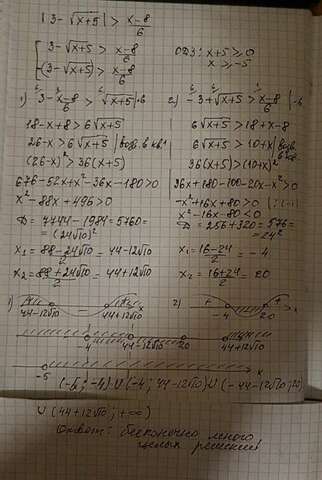 |3-√(x+5)| > (x-8)/6
[3-√(x+5) > (x-8)/6
-(3-√(x+5)) > (x-8)/6
ОДЗ: x+5 ≥ 0
x ≥ -5
1) 3 - (x-8)/6 > √(x+5) |·6
18-x+8 > 6√(x+5)
26-x > 6√(x+5) | возв. в кв!
(26-x)² > 36(x+5)
676-52x+x²-36x-180>0
x²-88x+496>0
D = 7744-1984=5760=
=(24√10)²
x₁ = (88-24√10)/2 = 44-12√10
x₂ = (88+24√10)/2 = 44+12√10
2) -3+√(x+5) > (x-8)/6 |·6
6√(x+5) > 18+x-8
6√(x+5) > 10+x | возв. в кв.
36(x+5)>(10+x)²
36x+180-100-20x-x²>0
-x²+16x+80>0 |:(-1)
x²-16x-80<0
D = 256+320=576=
=24²
x₁ = (16-24)/2 = -4
x₂ = (16+24)/2 = 20
1) + - +
44-12√10 44+12√10
2) + - + x
-4 20
-4 44-12√10 20 44+12√10
-5 x
(-5; -4) ∪ (-4; 44-12√10) ∪ (-44-12√10; 20)
∪ (44+12√10; +∞)
Ответ: бесконечно много
целых решений